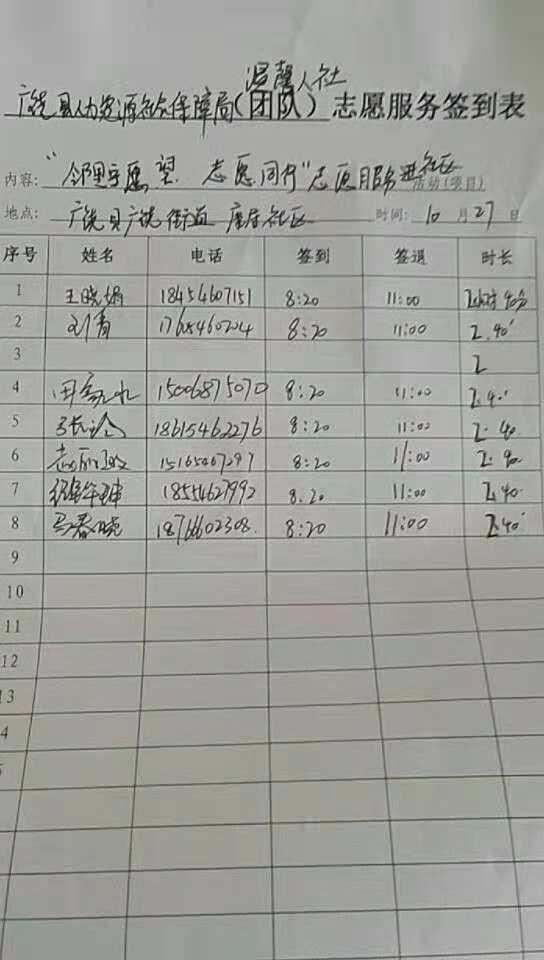 温馨人社
广饶县人力资源社会保障局(团队)志愿服务签到表
内容:"邻里守愿望 志愿同行"志愿服务进社区活动(项目)
地点:广饶县广饶街道 社区 时间:10月27日
序号 姓名 电话 签到 签退 时长
1 王晓娟 18454607151 8:20 11:00 2小时40分
2 刘倩 17605460204 8:20 11:00 2.40'
3 2
4 15006875070 8:20 11:00 2.40'
5 18615462276 8:20 11:00 2.40
6 15165467297 8:20 11:00 2.40
7 18554627992 8.20 11:00 2.40
8 马春晓 18766602308. 8:20 11:00 2.40'
9
10
11
12
13
4
5